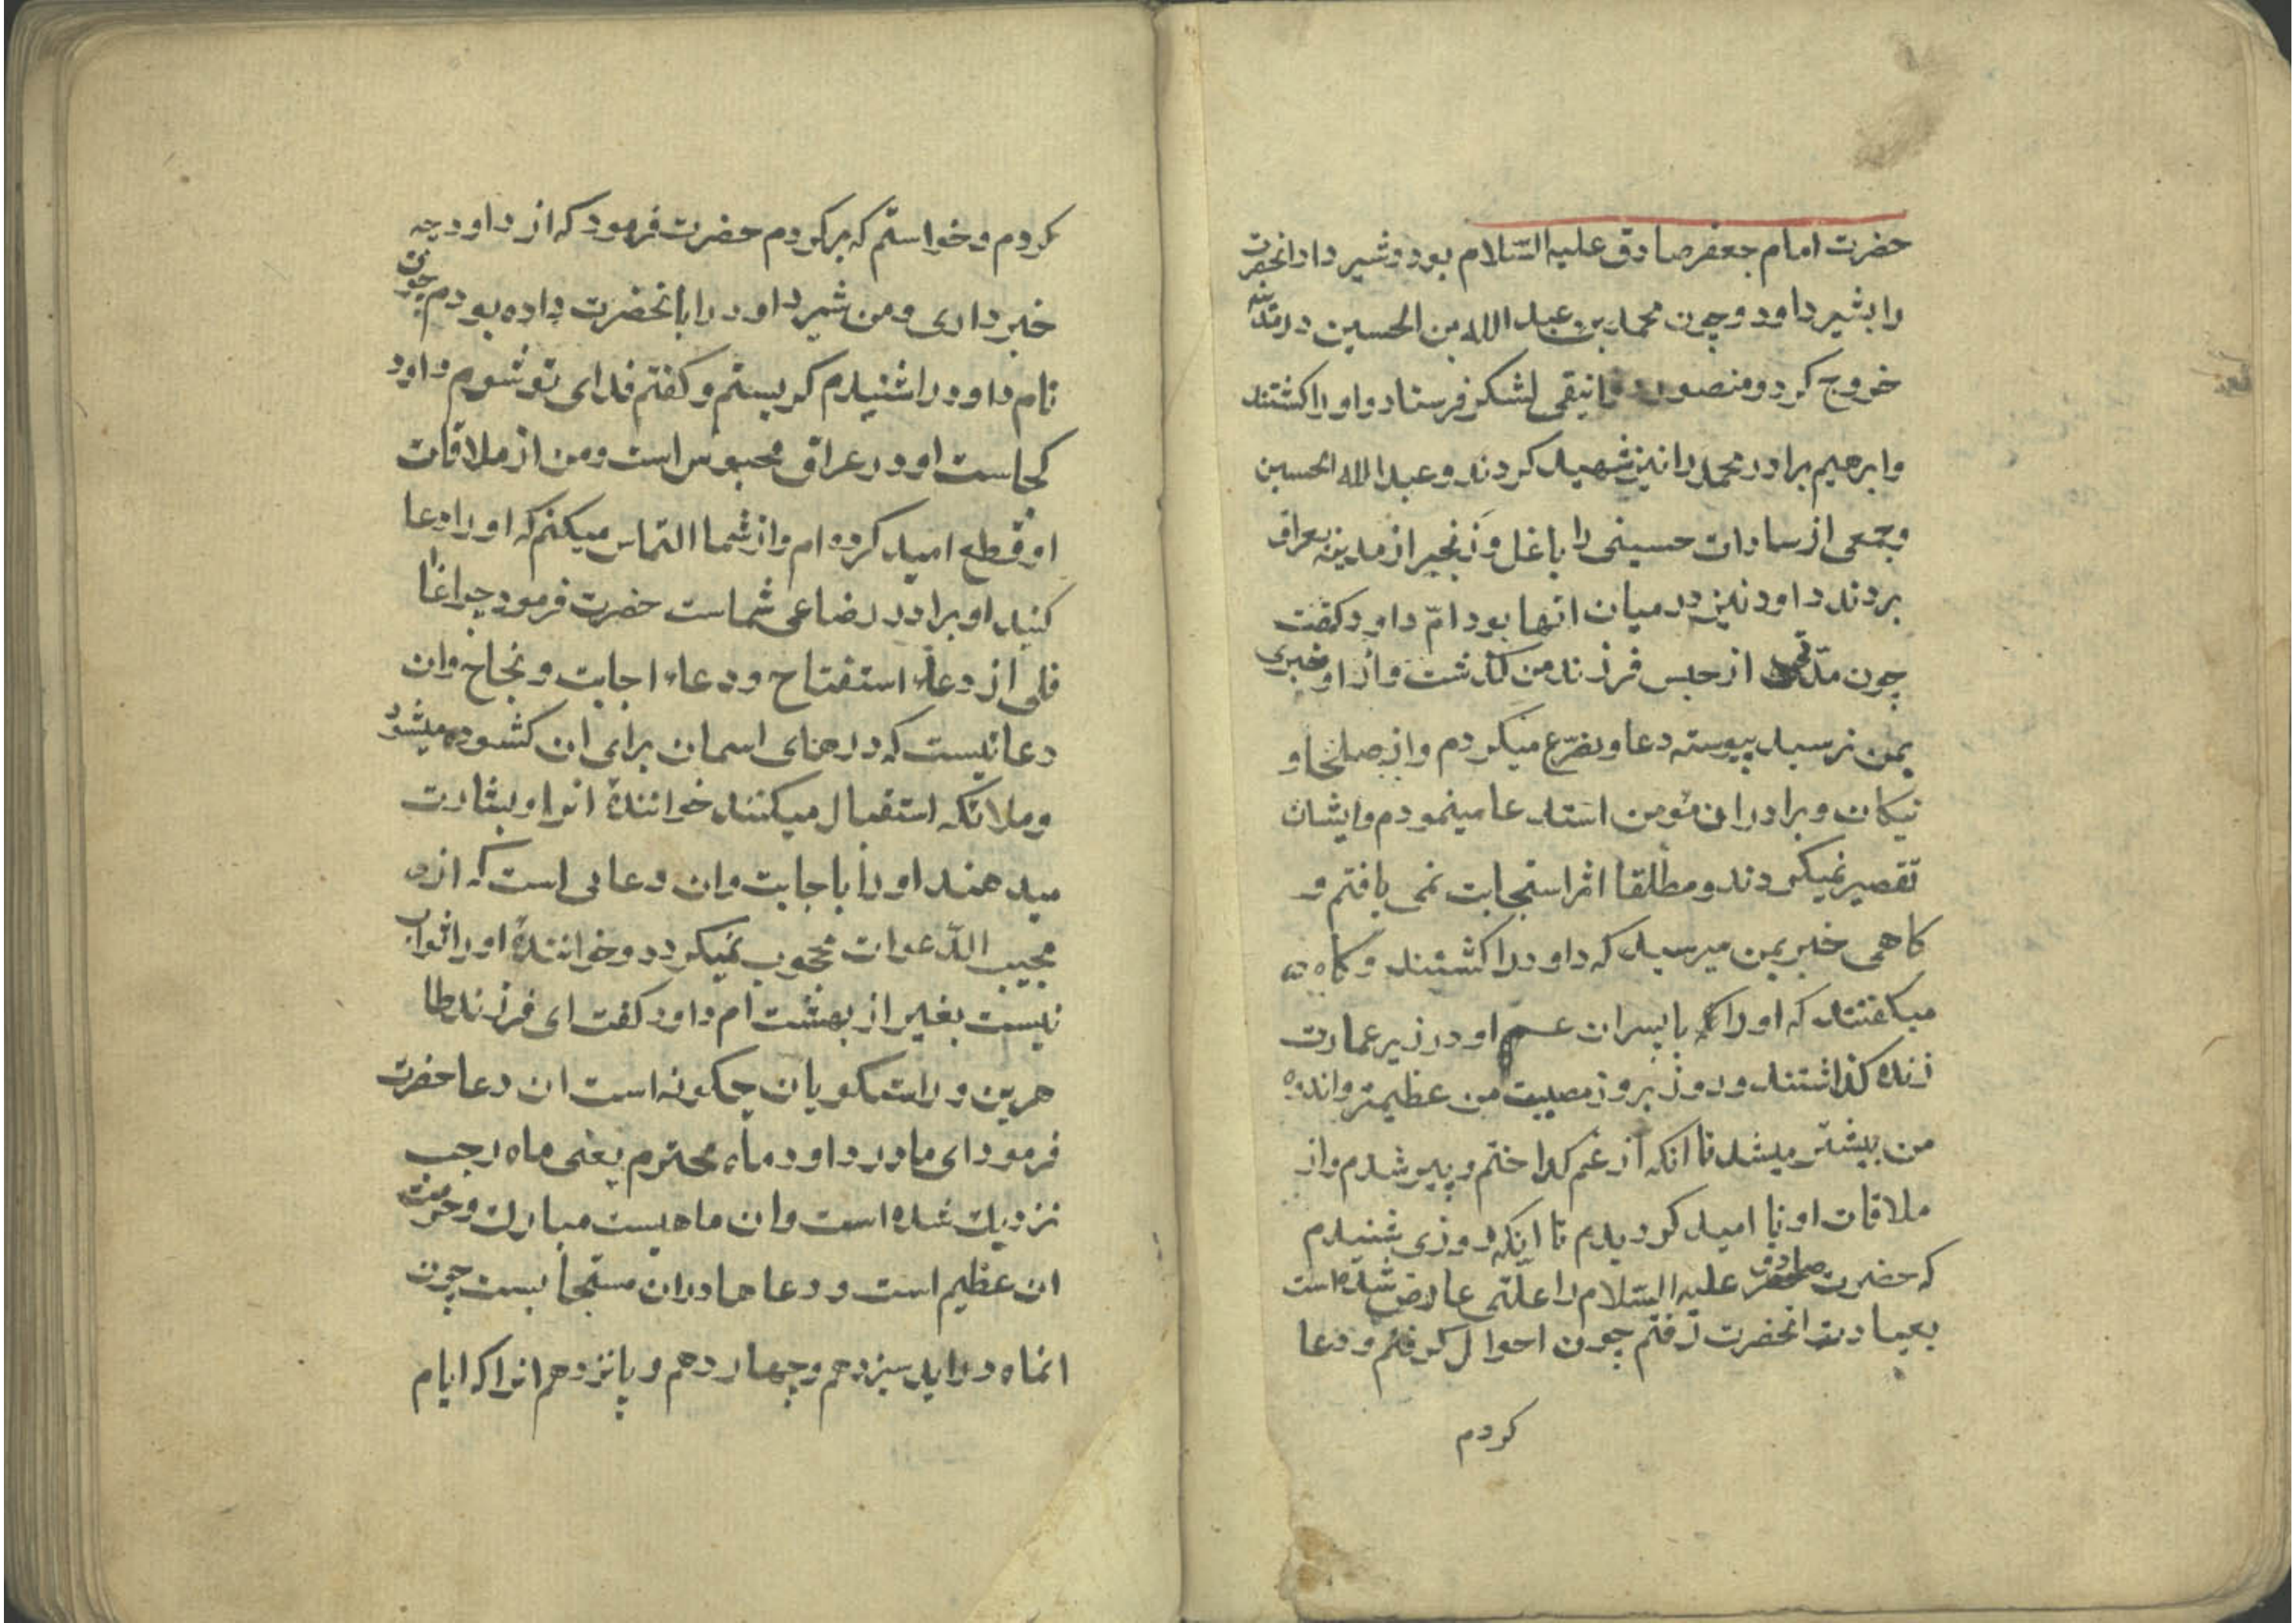 حضرت امام جعفر صادق علیه السّلام بود و شیر داد انحضرت
را بشیر داود و چون محمد بن عبد الله بن الحسین در مدینه
خروج کرد و منصور دوانیقی لشکر فرستاد و او را کشتند
و ابرهیم برادر محمد را نیز شهید کردند و عبد الله الحسین
و جمعی از سادات حسینی را با غل و زنجیر از مدینه بعراق
بردند داود نیز در میان انها بود امّ داود کفت
چون مدّتی از حبس فرزند من کذشت و از او خبری
بمن نرسید پیوسته دعا و تضرّع میکردم و از صلحا و
نیکان و برادران مؤمن استدعا مینمودم و ایشان
تقصیر نمیکردند و مطلقا اثر استجابت نمی یافتم و
کاهی خبر بمن میرسید که داود را کشتند و کاه
میکفتند که او را با پسران عم او در زیر عمارت
زنده کذاشتند و روز بروز مصیبت من عظیمتر و اندوه
من بیشتر میشد تا انکه از غم کداختم و پیر شدم و از
ملاقات او نا امید کردیدم تا انکه روزی شنیدم
که حضرت صادق علیه السّلام را علّتی عارض شده است
بعیادت انحضرت رفتم چون احوال کرفتم و دعا
کردم
کردم و خواستم که برکردم حضرت فرمود که از داود چه
خبر داری و من شیر داود را بانحضرت داده بودم چون
نام داود را شنیدم کریستم و کفتم فدای تو شوم داود
کجاست او در عراق محبوس است و من از ملاقات
او قطع امید کرده ام و از شما التماس میکنم که او را دعا
کنید او برادر رضاعی شماست حضرت فرمود چرا غا
فلی از دعاء استفتاح و دعاء اجابت و نجاح و ان
دعائیست که درهای اسمان برای ان کشوده میشود
و ملائکه استقبال میکنند خوانندهٔ انرا و بشارت
میدهند او را باجابت و ان دعائی است که از
مجیب الدّعوات محجوب نمیکردد و خوانندهٔ او را ثواب
نیست بغیر از بهشت ام داود کفت ای فرزند طا
هرین و راستکویان چکونه است ان دعا حضرت
فرمود ای مادر داود ماه محترم یعنی ماه رجب
نزدیک شده است و ان ماهیست مبارک و حرمت
ان عظیم است و دعاها در ان مستجابست چون
انماه در اید سیزدهم و چهاردهم و پانزدهم انرا که ایام